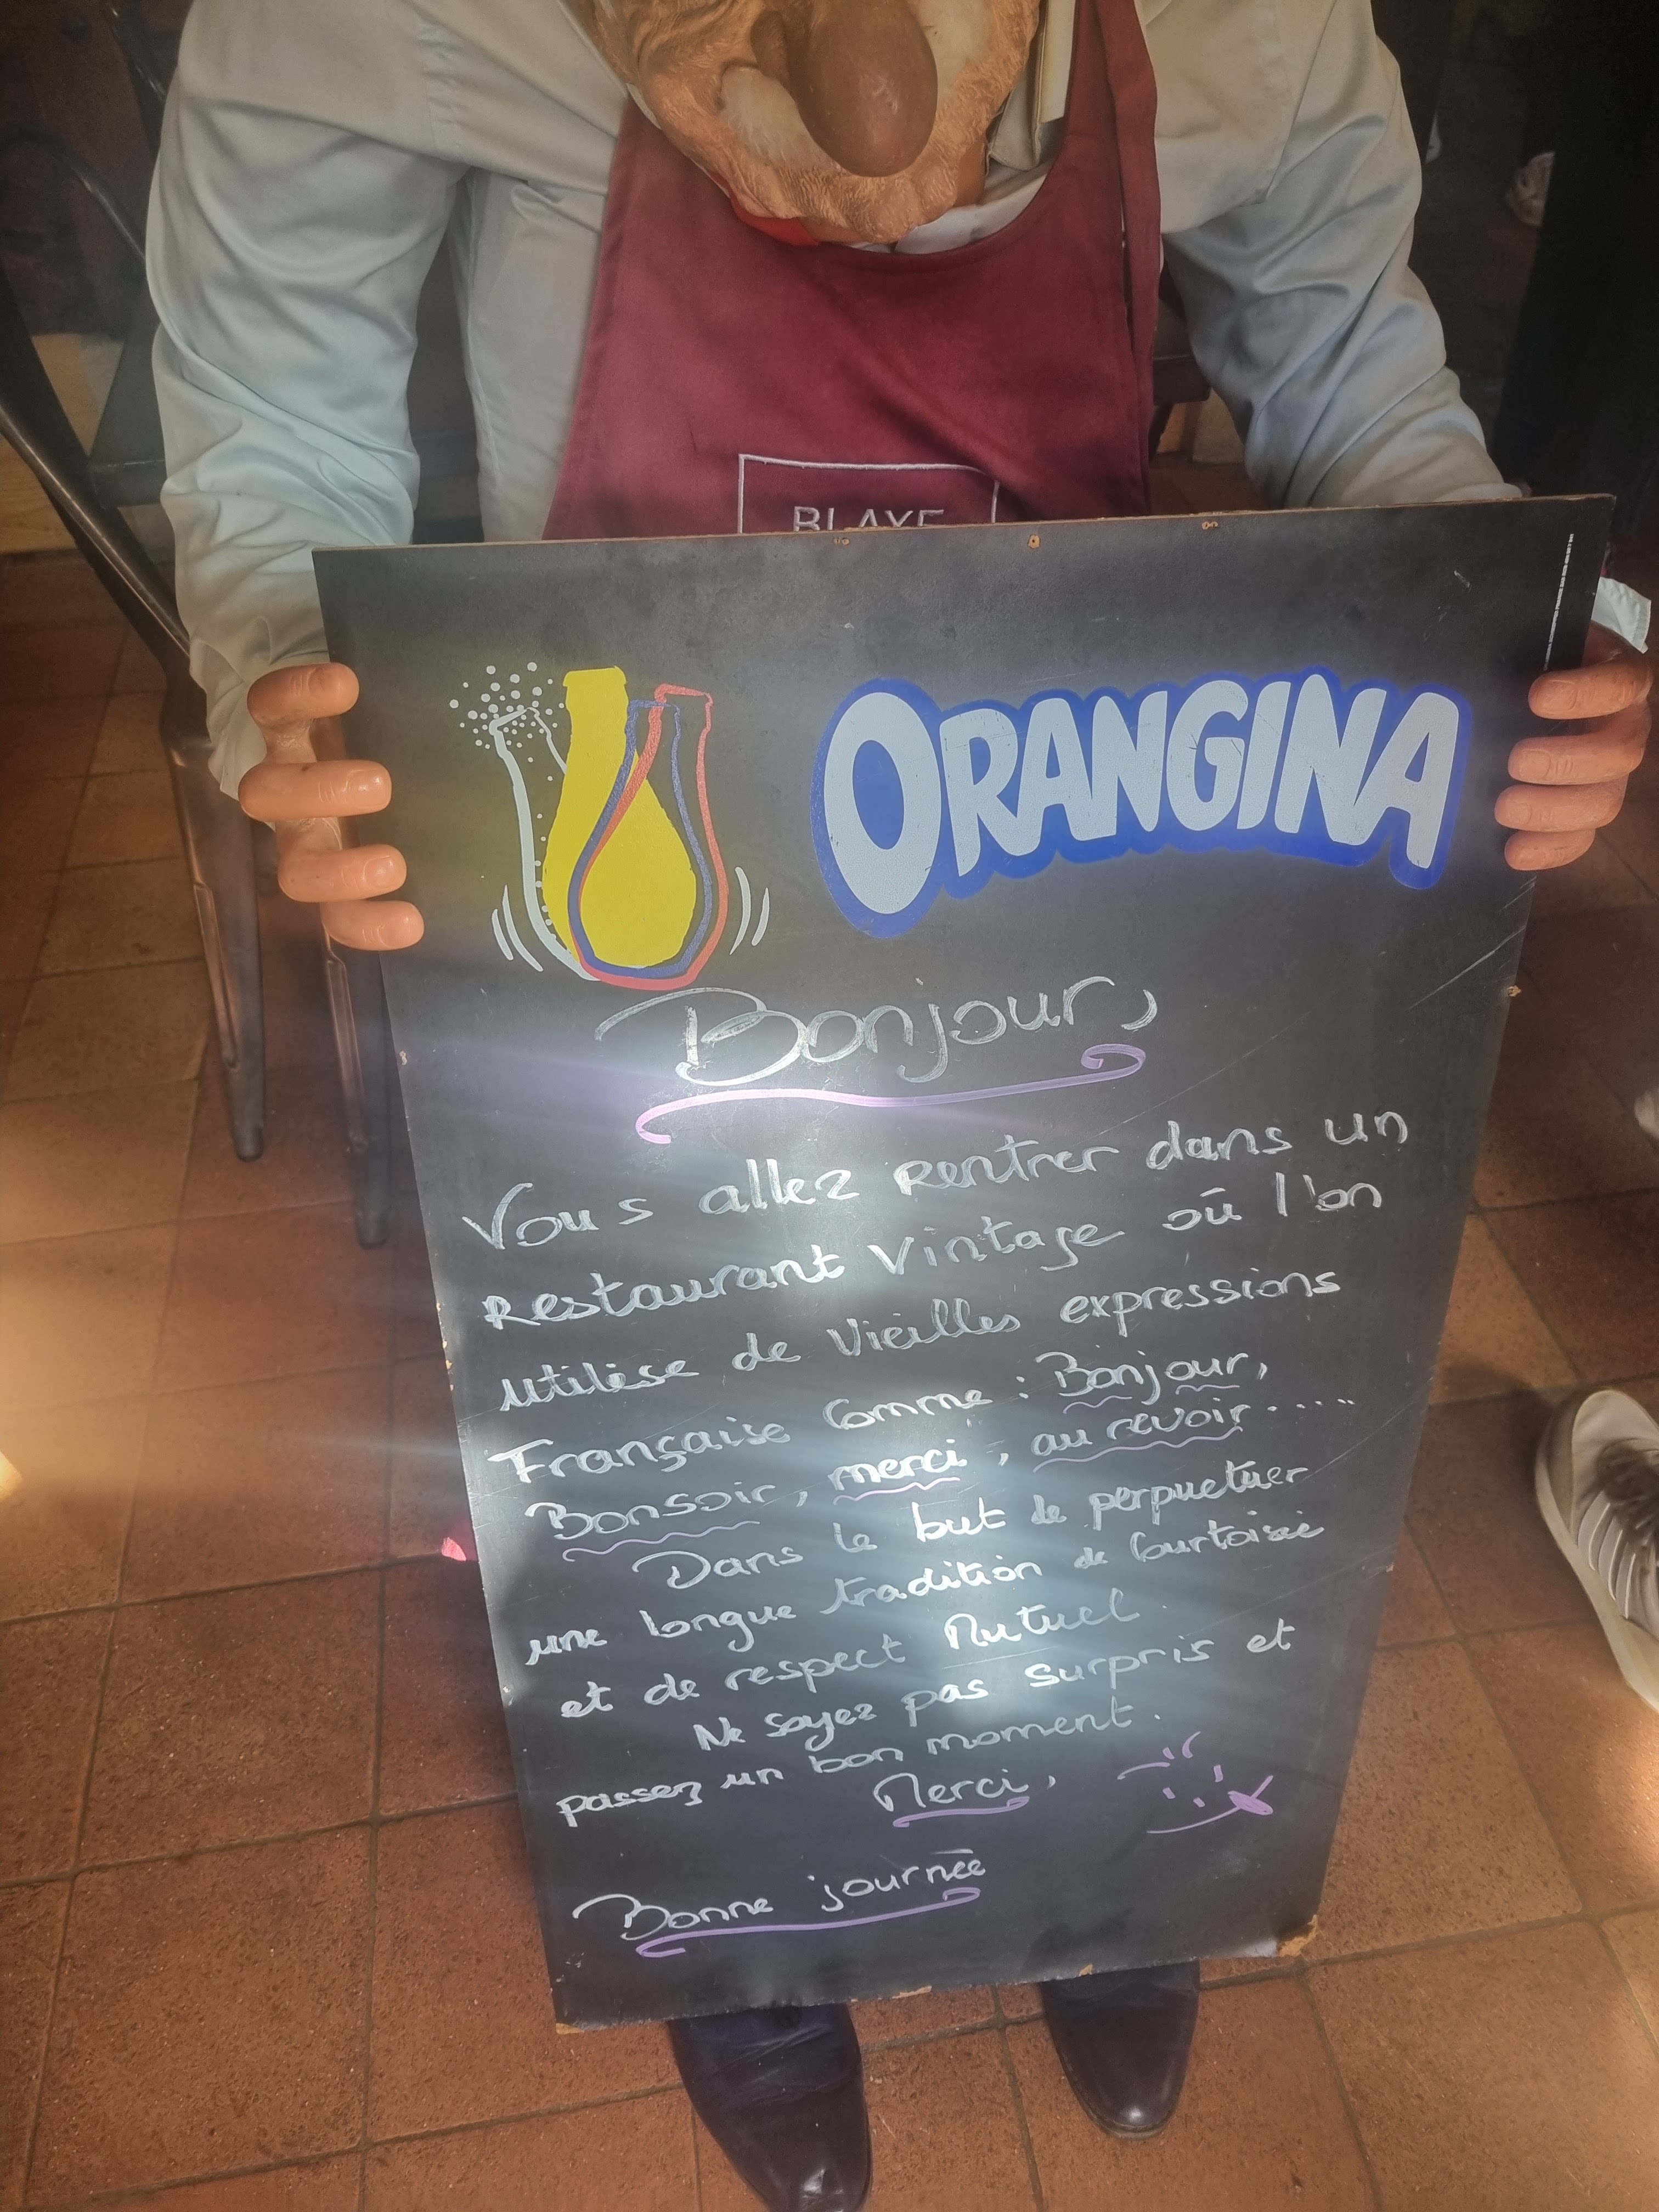 BLAYE
ORANGINA
Bonjour,
Vous allez rentrer dans un
restaurant vintage où l'on
utilise de vieilles expressions
Française comme : Bonjour,
Bonsoir, merci, au revoir.....
Dans le but de perpetuer
une longue tradition de courtoisie
et de respect Mutuel.
Ne soyez pas surpris et
passez un bon moment.
Merci,
Bonne journée